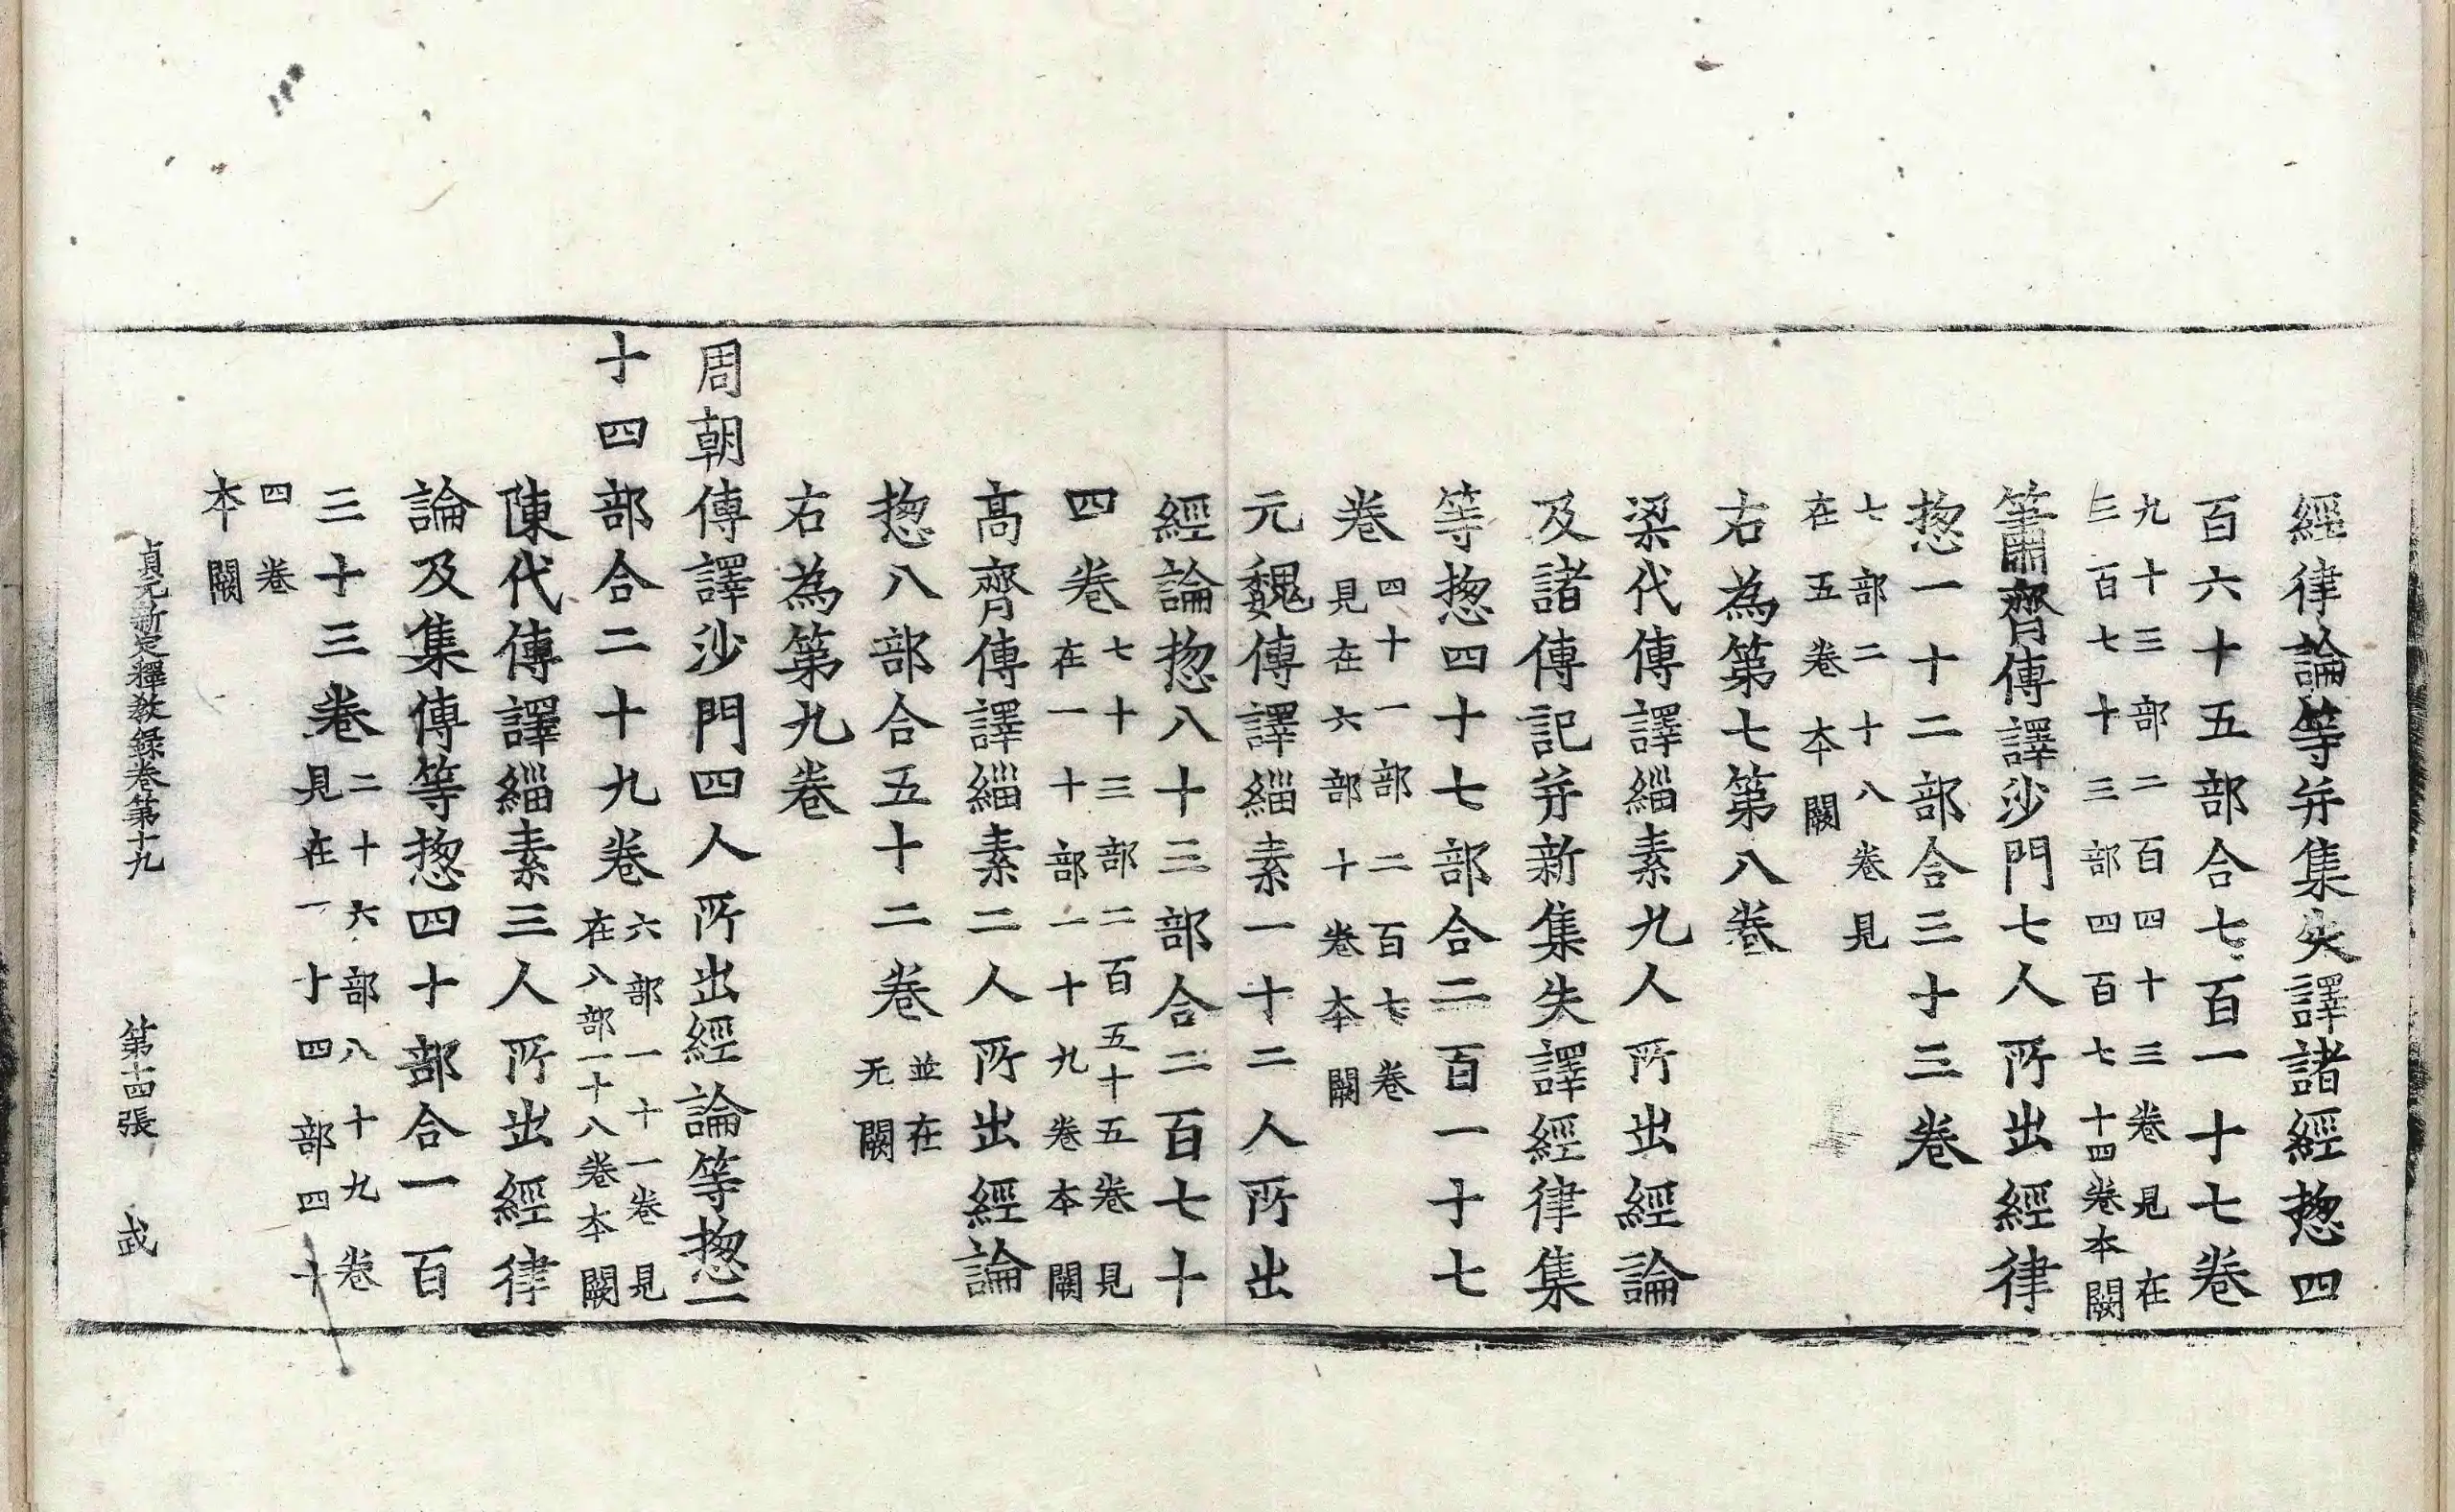 經律論等并集失譯諸經惣四
百六十五部合七百一十七卷
九十三部二百四十三卷見在
三百七十三部四百七十四卷本闕
蕭齊傳譯沙門七人所出經律
惣一十二部合三十三卷
七部二十八卷見
在五卷本闕
右為第七第八卷
梁代傳譯緇素九人所出經論
及諸傳記并新集失譯經律集
等惣四十七部合二百一十七
卷
四十一部二百七卷
見在六部十卷本闕
元魏傳譯緇素一十二人所出
經論惣八十三部合二百七十
四卷
七十三部二百五十五卷見
在一十部一十九卷本闕
高齊傳譯緇素二人所出經論
惣八部合五十二卷
並在
无闕
右為第九卷
周朝傳譯沙門四人所出經論等惣一
十四部合二十九卷
六部一十一卷見
在八部一十八卷本闕
陳代傳譯緇素三人所出經律
論及集傳等惣四十部合一百
三十三卷
二十六部八十九卷
見在一十四部四十
四卷
本闕
貞元新定釋教録卷第十九 第十四張 㦲